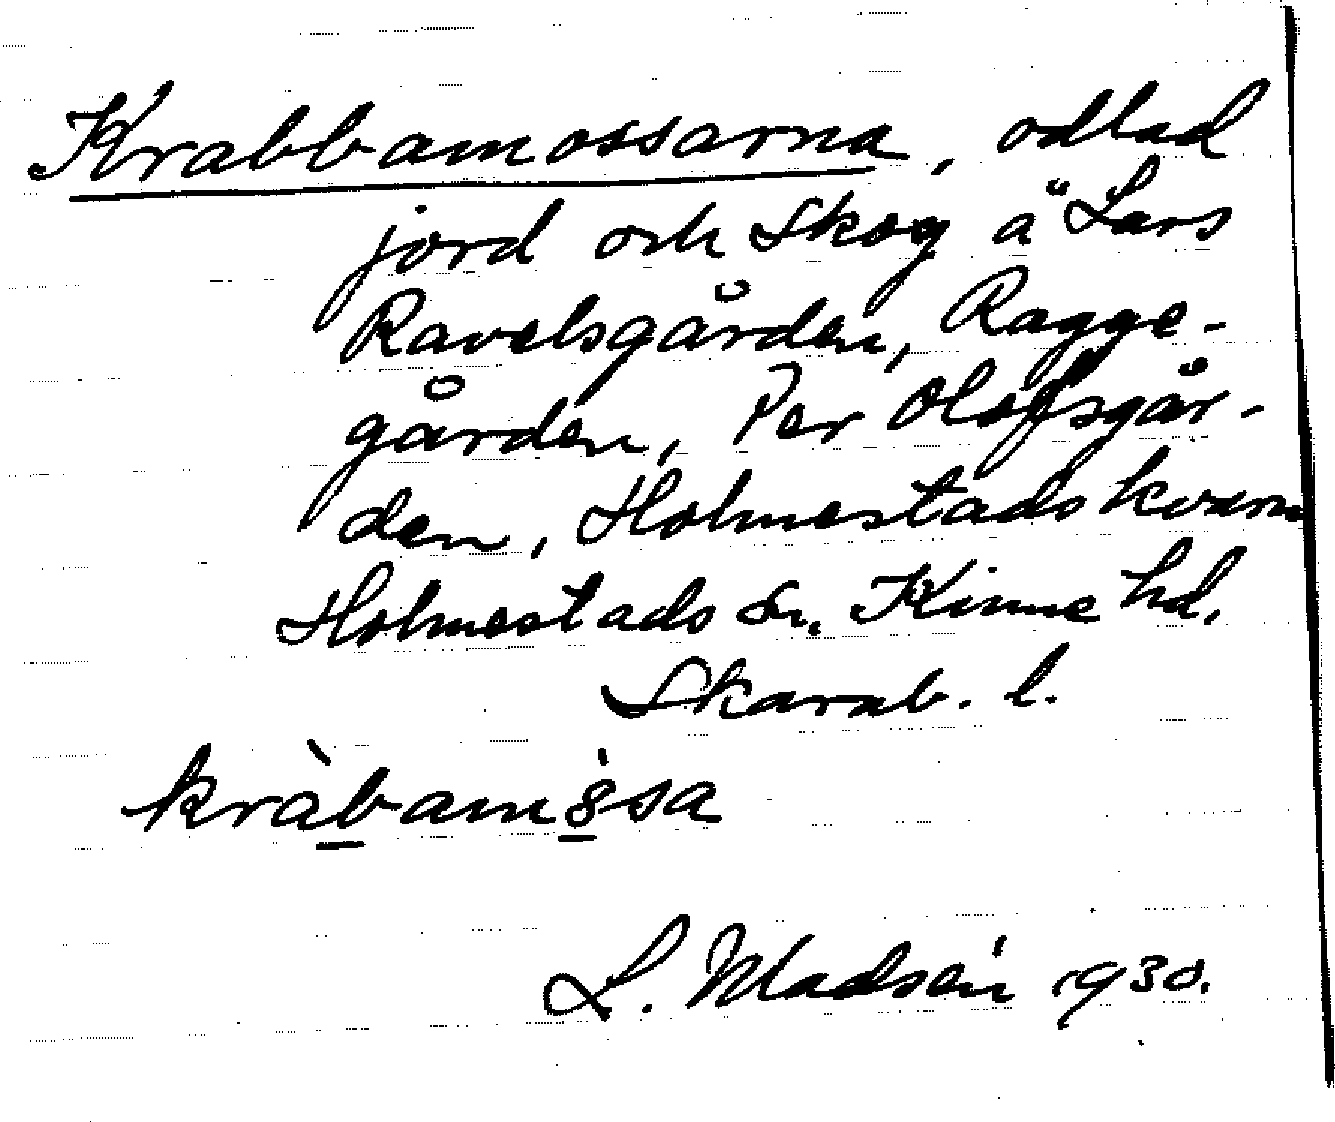 Krabbamossarna, odlad
jord och skog å Lars
Ravelsgården, Ragge-
gården, Per Olofsgår-
den, Holmestads kvarn
Holmestads sn. Kinne hd.
Skarab. l.
kràbamȯ̀sa
L. Madsén 1930.